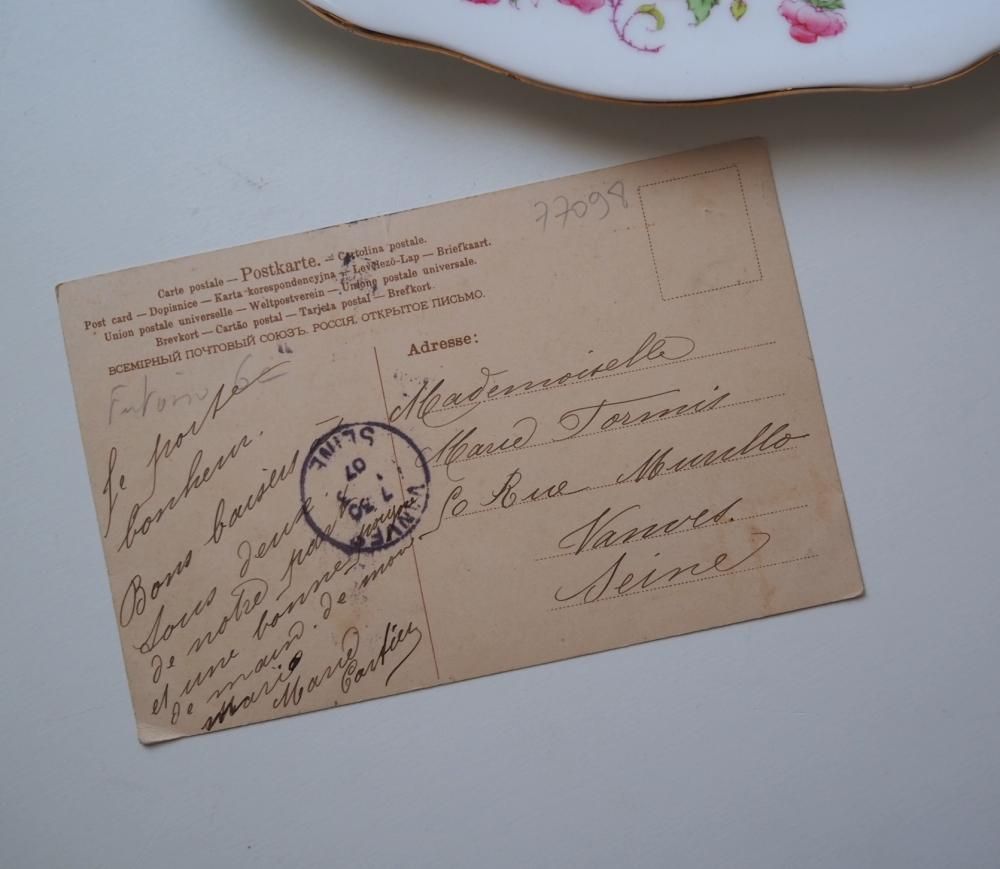 77098
Carte postale — Postkarte. — Cartolina postale.
Post card — Dopisnice — Karta korespondencyjna — Levelező-Lap — Briefkaart.
Union postale universelle — Weltpostverein — Unione postale universale.
Brevkort — Cartão postal — Tarjeta postal — Brefkort.
ВСЕМІРНЫЙ ПОЧТОВЫЙ СОЮЗЪ. РОССІЯ. ОТКРЫТОЕ ПИСЬМО.
Je porte
bonheur.
Bons baisers
Tous deux
de notre part
et une bonne poignée
de main. de mon
mari
Marie
Cartier
VANVES
7 30
3
07
SEINE
Adresse:
Mademoiselle
Marie Tormis
Rue Murillo
Vanves.
Seine